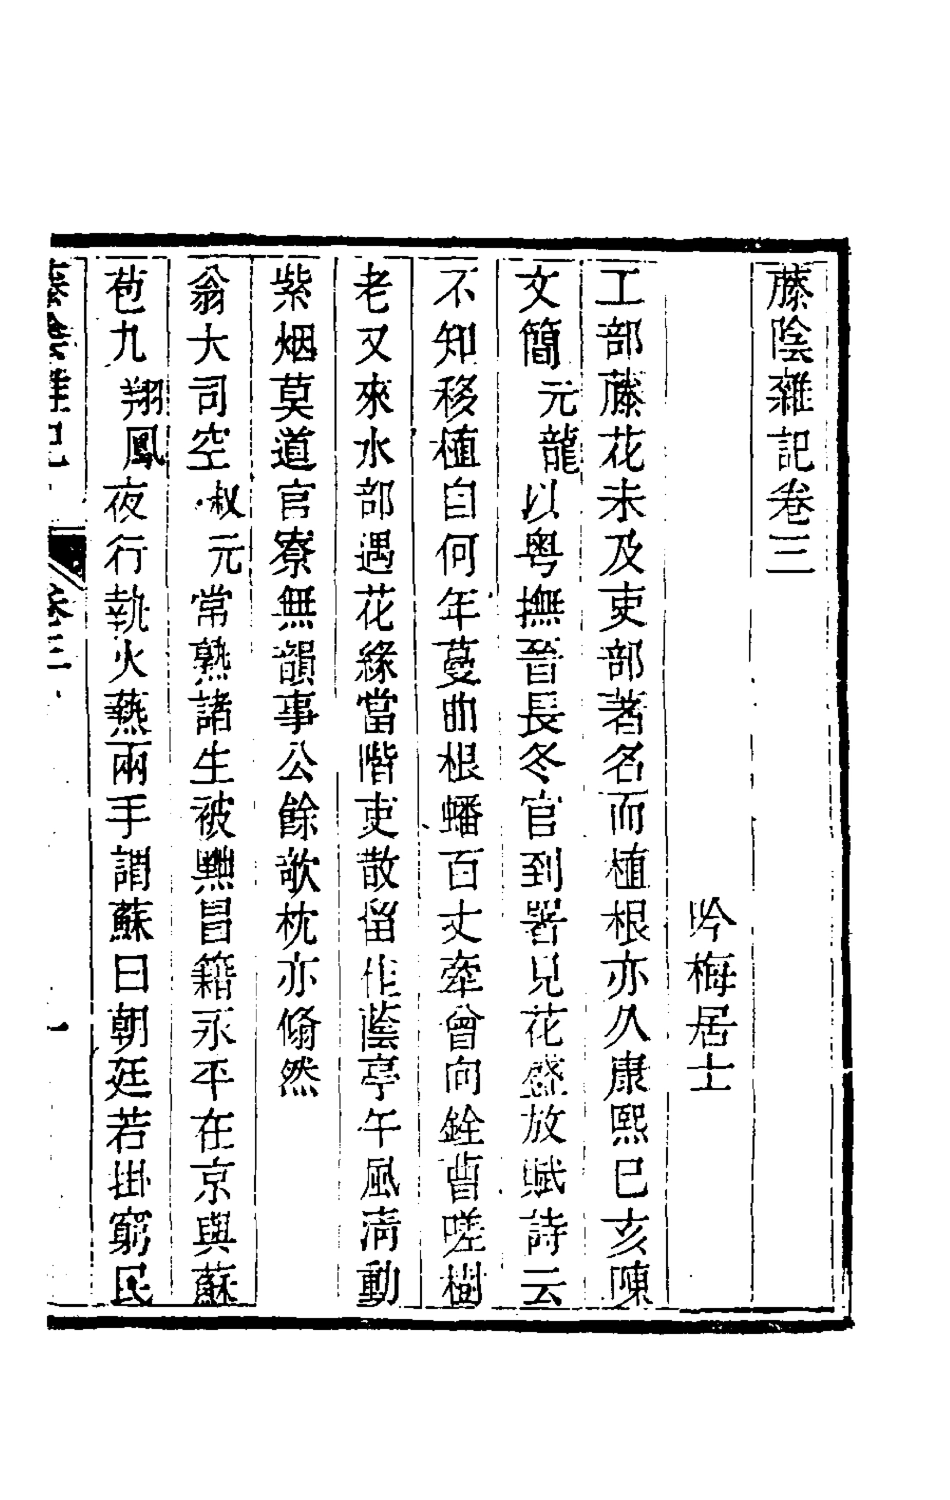 藤陰雜記卷三
吟梅居士
工部藤花未及吏部著名而植根亦久康熙己亥陳
文簡元龍以粤撫晉長冬官到署見花盛放賦詩云
不知移植自何年蔓曲根蟠百丈牽曾向銓曹嗟樹
老又來水部遇花緣當階吏散留作蔭亭午風淸動
紫烟莫道官寮無韻事公餘欹枕亦翛然
翁大司空叔元常熟諸生被黜冒籍永平在京與蘇
苞九翔鳳夜行執火爇兩手謂蘇曰朝廷若掛窮民
藤陰雜記 卷三 一